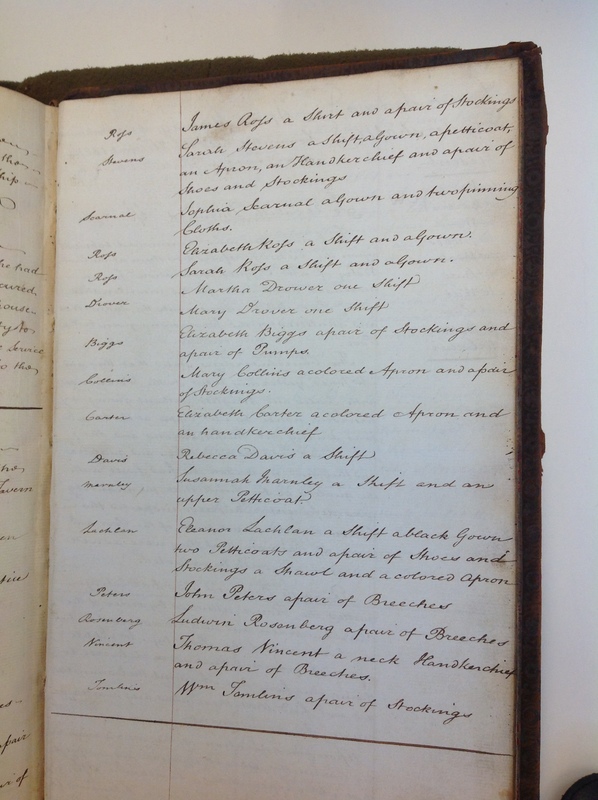 Ross James Ross a Shirt and apair of Stockings
Stevens Sarah Stevens a Shift, a Gown, a petticoat,
an Apron, an Handkerchief and apair of
Shoes and Stockings
Scarnal Sophia Scarnal a Gown and two pinning
Cloths.
Ross Elizabeth Ross a Shift and a Gown.
Ross Sarah Ross a Shift and a Gown.
Martha Drower one Shift
Drover Mary Drover one Shift
Biggs Elizabeth Biggs apair of Stockings and
apair of Pumps.
Collins Mary Collins a colored Apron and apair
of Stockings.
Carter Elizabeth Carter a colored Apron and
an handkerchief
Davis Rebecca Davis a Shift
Susannah a Shift and an
upper Petticoat.
Lachlan Eleanor Lachlan a Shift a black Gown
two Petticoats and apair of Shoes and
Stockings a Shawl and a colored Apron
Peters John Peters apair of Breeches
Rosenberg Ludwin Rosenberg apair of Breeches
Vincent Thomas Vincent a neck Handkerchief
and apair of Breeches.
Tomlins Wm Tomlins apair of Stockings
he had
house
Service
Tavern
pair
of